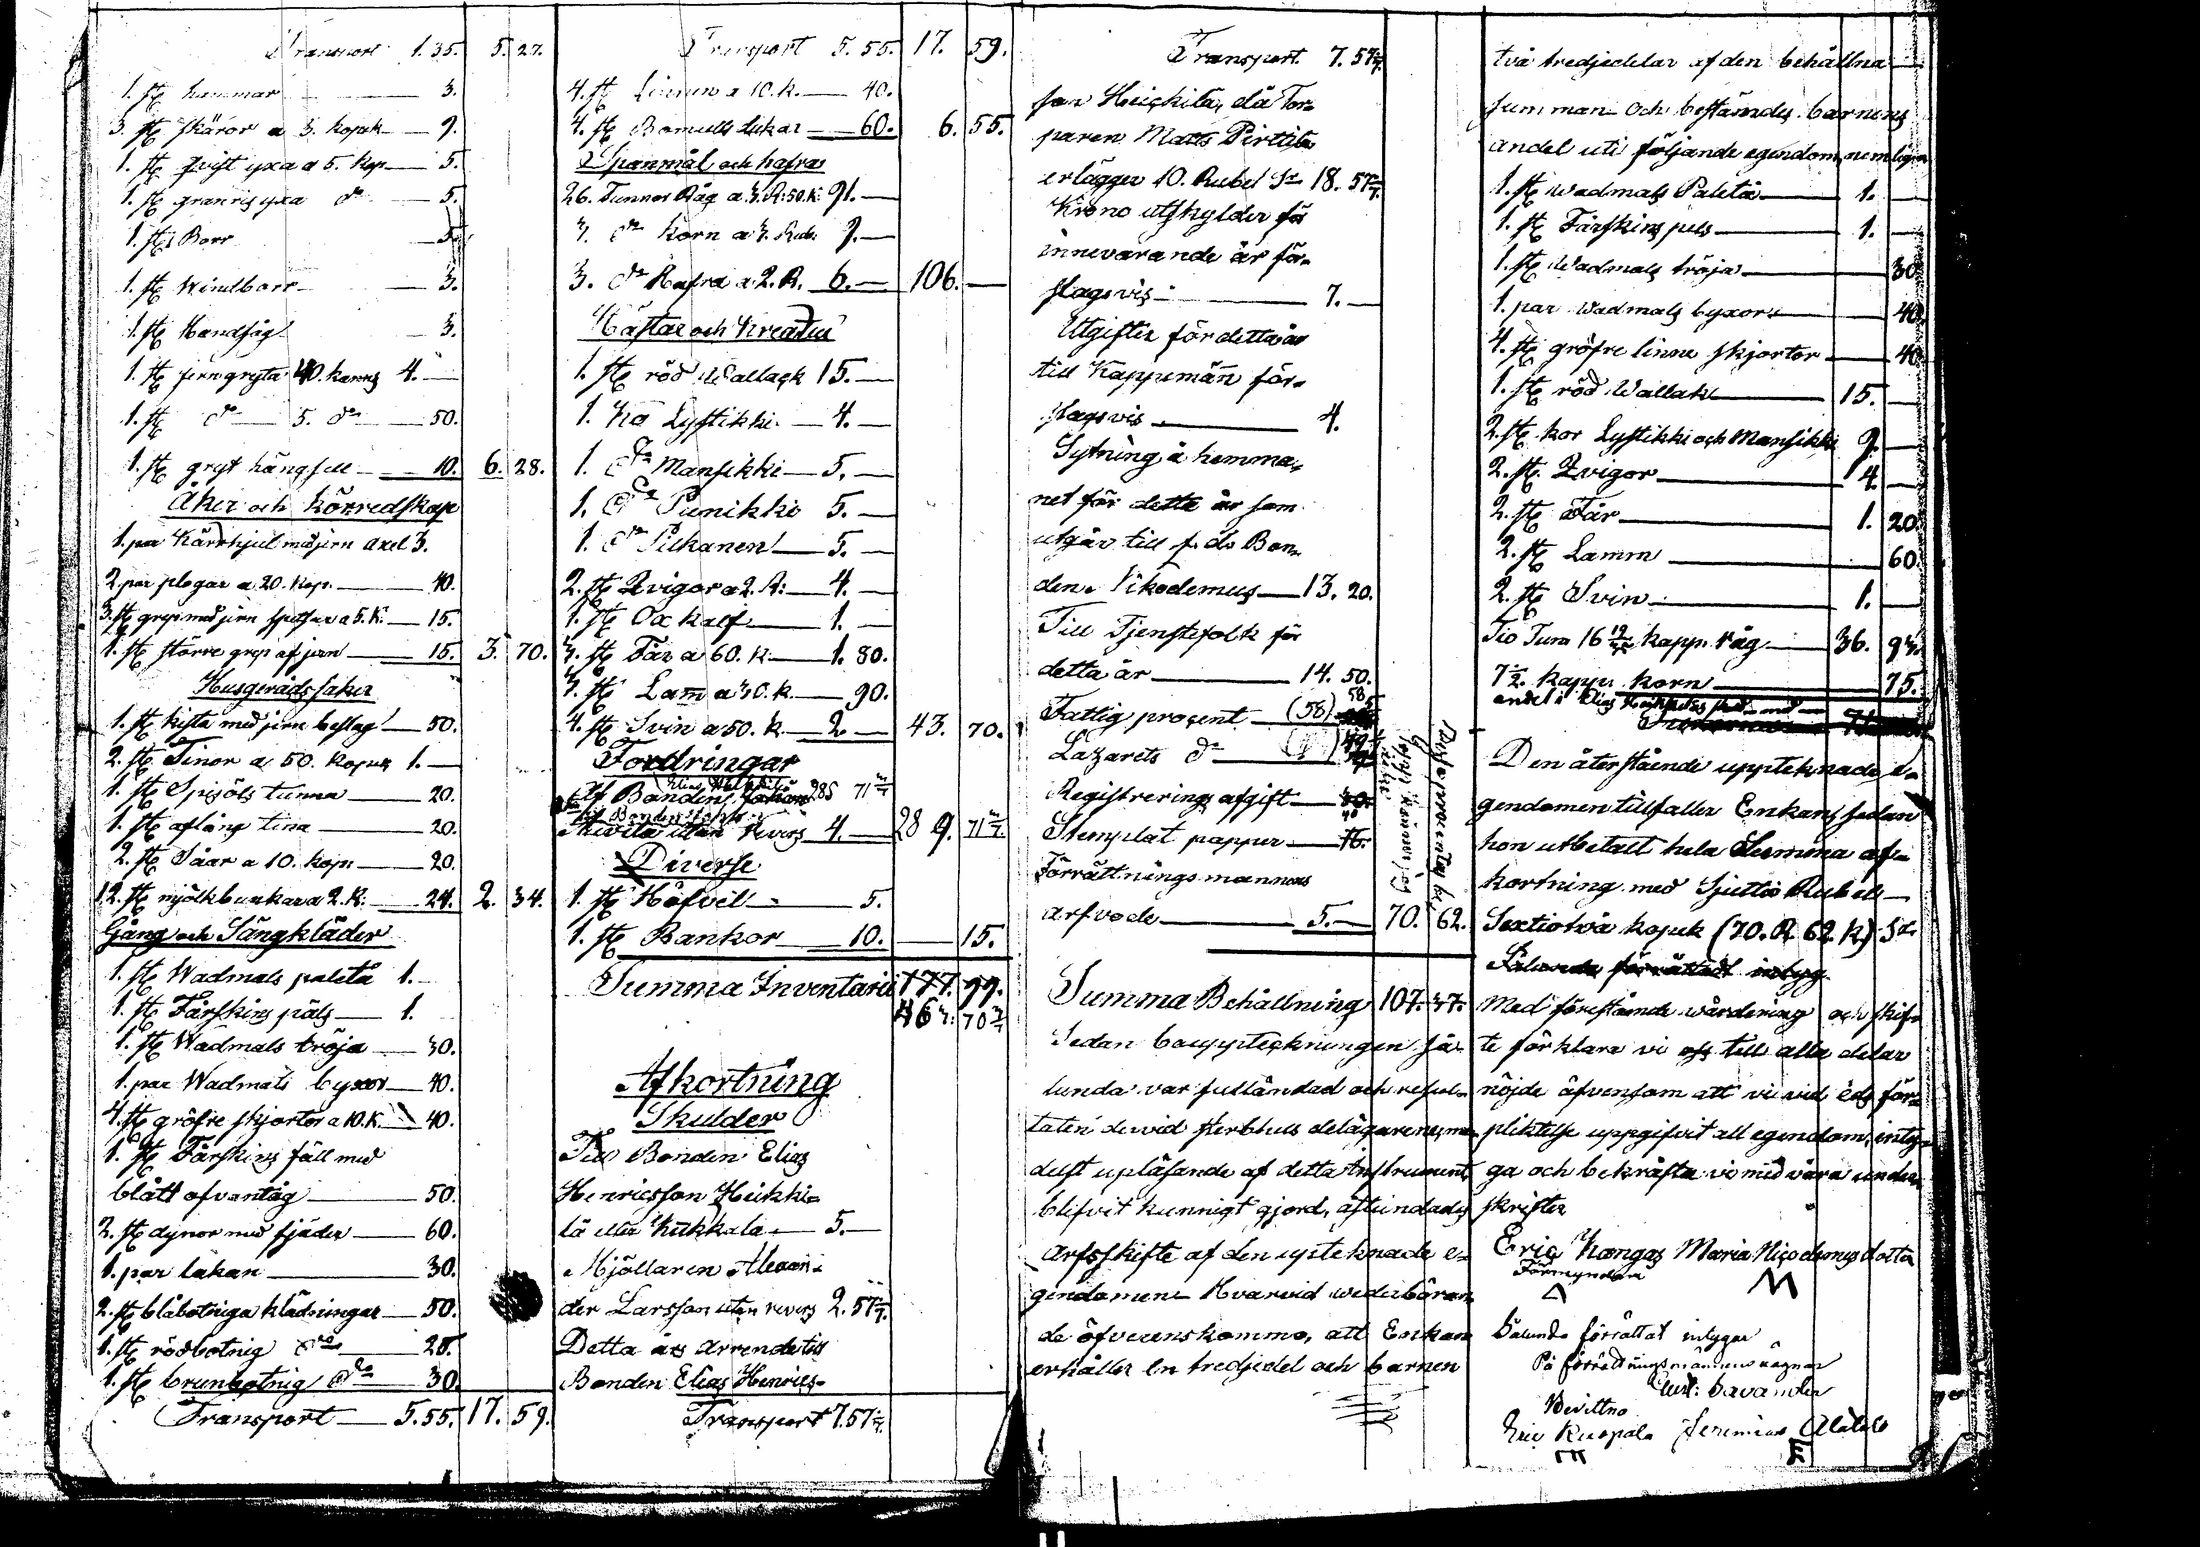 Transport 1. 35. 5. 27.
1. st hammar 3.
3. st skäror a 3. kopek 9.
1. st qvist yxa a 5. kop 5.
1. st granris yxa do 5.
1. st Borr 5.
1. st Windborr 3.
1. st Handsåg 3.
1. st jerngryta 40. kanns 4.
1. st do 5. do 50.
1. st gryt hängsell 10. 6. 28.
Åker och körredskap
1. par Kärrhjul med jern axel 3.
2. par plogar a 20. kop. 40.
3. st grep med jern spetsar a 5. K. 15.
1. st större grep af jern 15. 3. 70.
Husgerådssaker
1. st kista med jern beslag 50.
2. st Tinor a 50. kopek 1.
1. st Spisöls tunna 20.
1. st aflång tina 20.
2. st Såar a 10. kop 20.
12. st mjölkbunkar a 2. K. 24. 2. 34.
Gång och Sängkläder
1. st Wadmals paletå 1.
1. st Fårskins päls 1.
1. st Wadmals tröja 30.
1. par Wadmals byxor 40.
4. st gröfre skjortor a 10. K. 40.
1. st Fårskins fäll med
blått ofvantåg 50.
2. st dynor med fjäder 60.
1. par lakan 30.
2. st blåbotniga klädningar 50.
1. st rödbotnig do 25.
1. st brunbotnig do 30.
Transport 5. 55. 17. 59.
Transport 5. 55. 17. 59.
4. st Linnen a 10. K. 40.
4. st Bomulls dukar 60. 6. 55.
Spanmål och hafra
26. Tunnor Råg a 3. R: 50. K: 91.
3. do korn a 3. Rub. 9.
3. do Hafra a 2. R. 6. 106.
Hästar och Kreatur
1. st röd Wallack 15.
1. Ko Lystikki 4.
1. do Mansikki 5.
1. do Punikki 5.
1. do Pilkanen 5.
2. st Qvigor a 2. R: 4.
1. st Oxkalf 1.
3. st Får a 60. K. 1. 80.
3. st Lam a 30. K. 90.
4. st Svin a 50. K. 2. 43. 70.
Fordringar
Af Bonden 285 71 3/7
utan revers 4. 28 9. 71 3/7
Diverse
1. st Höfvel 5.
1. st Bankor 10. 15.
Summa Inventarii 177. 99.
463. 70 3/7
Afkortning
Skulder
Till Bonden Elias
Henricsson Heikki-
lä eller Kukkala 5.
Mjöllaren Alexan-
der Larsson utan revers 2. 57 1/7.
Detta års Arrende till
Bonden Elias Henrics-
Transport 7. 57 1/7.
Transport 7. 57 1/7.
son Heickilä, då Tor-
paren Matts Pirttilä
erlägger 10. Rubel Sr 18. 57 1/7.
Krono utskylder för
innevarande år för-
slagsvis 7.
Utgifter för detta år
till Kappemän för-
slagsvis 4.
Sytning å hemma-
net för detta år som
utgår till f. d. Bon-
den Nikodemus 13. 20.
Till Tjenstefolk för
detta år 14. 50.
Fattig procent (58) 58
Lazarets do
Registrerings afgift
Stemplat papper
Förrättningsmannens
arfvode 5. 70. 62.
Summa Behållning 107. 37.
Sedan bouppteckningen så-
lunda var fulländad och resul-
taten dervid sterbhus delägarena, me-
delst upläsande af detta instrument,
blifvit kunnigt gjord, åstundades
arfsskifte af den upteknade e-
gendomen. Hvarvid wederböran-
de öfverenskommo, att Enkan
erhåller en tredjedel och barnen
två tredjedelar af den behållna
summan och bestämdes barnens
andel uti följande egendom, nemligen
1. st Wadmals Paletå 1.
1. st Fårskins pels 1.
1. st Wadmals tröja 30
1. par Wadmals byxor 40
4. st gröfre linne skjortor 40
1. st röd Wallak 15.
2. st kor Lystikki och Mansikki 9.
2. st Qvigor 4.
2. st Får 1. 20
2. st Lamm 60.
2. st Svin 1.
Tio Tunn 16 kapp. råg 36. 93.
7 1/2 kappe korn 75.
Den återstående uppteknade e-
gendomen tillfaller Enkan, sedan
hon utbetalt hela Summa af-
kortning med Sjuttio Rubel
Sextiotvå kopek (70. R. 62 K) Sr
Med förestående wärdering och skif-
te förklara vi oss till alla delar
nöjde äfvensom att vi vid eds för-
pliktelse uppgifvit all egendom, inty-
ga och bekräfta vi med våra under-
skrifter
Eric Kangas Maria Nicodemus dotter
Förmyndare
Sålunda förrättat intygar
På förrättningsmannens vägnar
Gust: Savander
Bevittna
Eric Ruopala Jeremias Alatalo